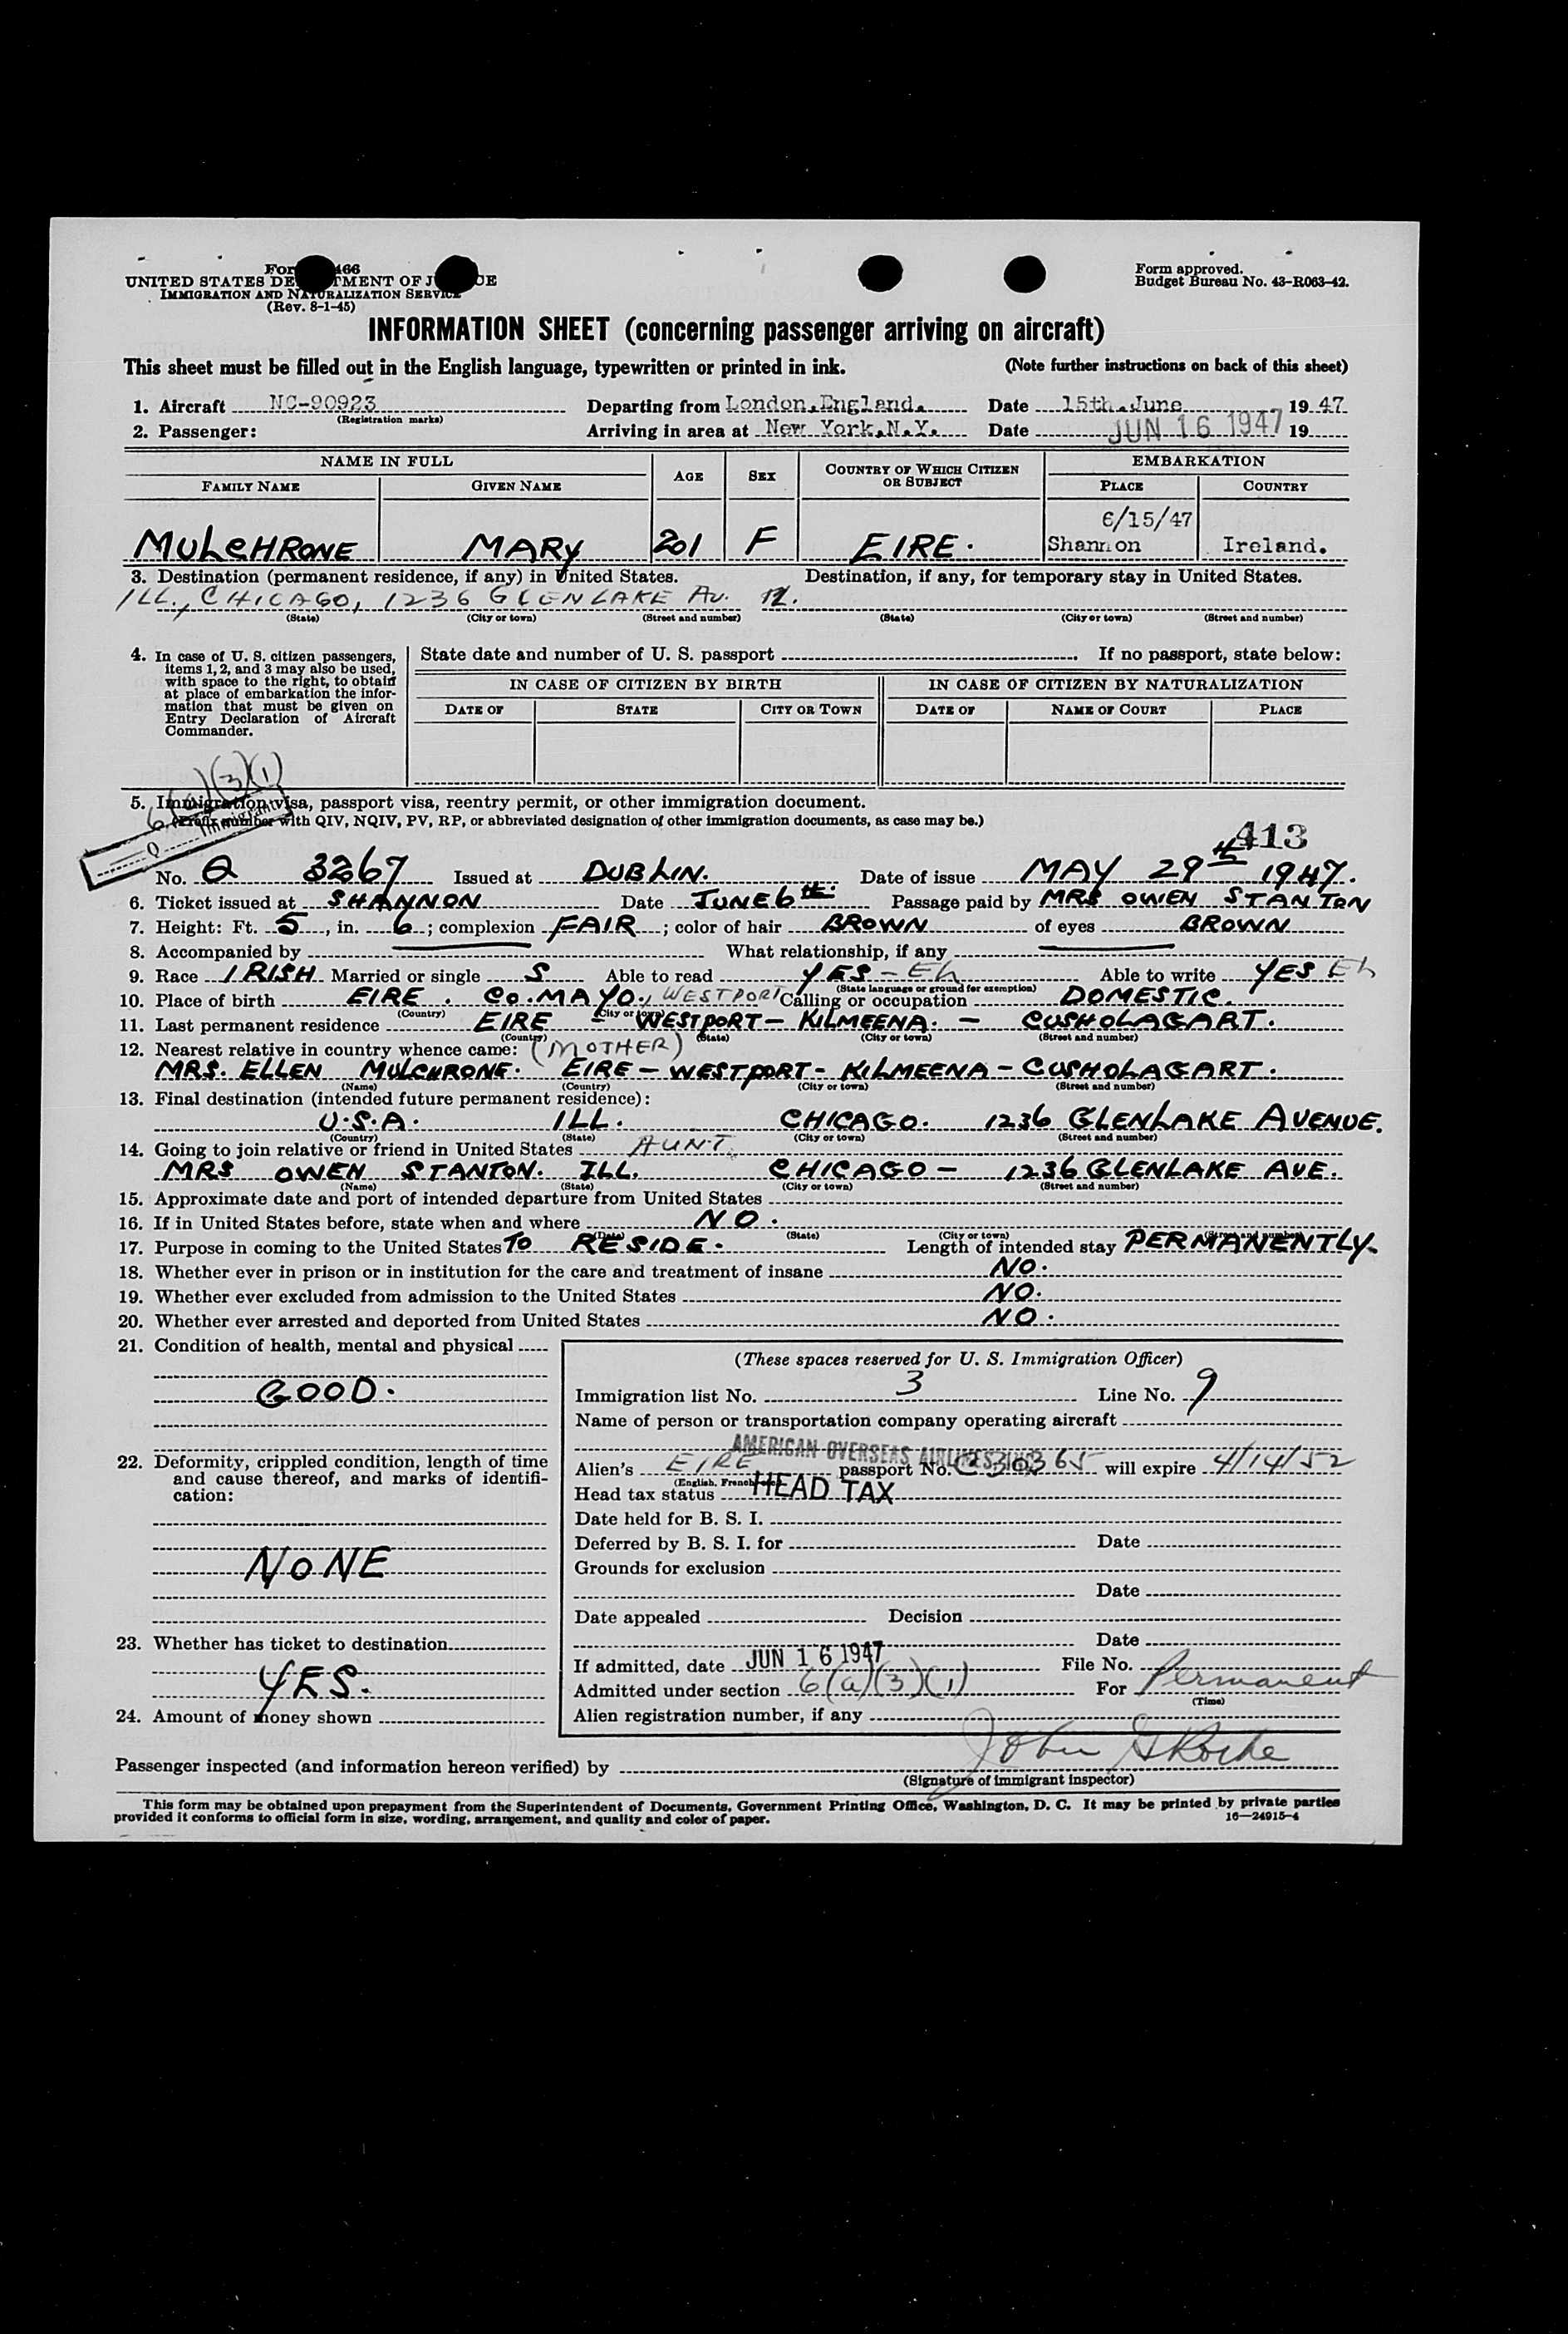 UNITED STATES DE TMENT OF J CE
IMMIGRATION AND NATURALIZATION SERVICE
(Rev. 8-1-45)
Form approved.
Budget Bureau No. 43-R063-42.
INFORMATION SHEET (concerning passenger arriving on aircraft)
This sheet must be filled out in the English language, typewritten or printed in ink. (Note further instructions on back of this sheet)
1. Aircraft NC-90923 Departing from London,England. Date 15th.June 1947
(Registration marks)
2. Passenger: Arriving in area at New York,N.Y. Date JUN 16 1947 19
NAME IN FULL AGE SEX COUNTRY OF WHICH CITIZEN OR SUBJECT EMBARKATION
FAMILY NAME GIVEN NAME PLACE COUNTRY
6/15/47
MULCHRONE MARY F EIRE. Shannon Ireland.
3. Destination (permanent residence, if any) in United States. Destination, if any, for temporary stay in United States.
ILL., CHICAGO, 1236 GLENLAKE Av.
(State) (City or town) (Street and number) (State) (City or town) (Street and number)
4. In case of U. S. citizen passengers, items 1, 2, and 3 may also be used, with space to the right, to obtain at place of embarkation the information that must be given on Entry Declaration of Aircraft Commander.
State date and number of U. S. passport . If no passport, state below:
IN CASE OF CITIZEN BY BIRTH IN CASE OF CITIZEN BY NATURALIZATION
DATE OF STATE CITY OR TOWN DATE OF NAME OF COURT PLACE
6(a)(3)(1)
5. Immigration visa, passport visa, reentry permit, or other immigration document.
(Prefix number with QIV, NQIV, PV, RP, or abbreviated designation of other immigration documents, as case may be.)
Q Immigrant
413
No. Q 3267 Issued at DUBLIN. Date of issue MAY 29th 1947.
6. Ticket issued at SHANNON Date JUNE 6th. Passage paid by MRS OWEN STANTON
7. Height: Ft. 5, in. 6; complexion FAIR; color of hair BROWN of eyes BROWN
8. Accompanied by What relationship, if any
9. Race IRISH Married or single S Able to read YES - Eh Able to write YES Eh
(State language or ground for exemption)
10. Place of birth EIRE. CO. MAYO., WESTPORT Calling or occupation DOMESTIC.
(Country) (City or town)
11. Last permanent residence EIRE - WESTPORT - KILMEENA. - CUSHOLAGART.
(Country) (State) (City or town) (Street and number)
12. Nearest relative in country whence came: (MOTHER)
MRS. ELLEN MULCHRONE. EIRE - WESTPORT - KILMEENA - CUSHOLAGART.
(Name) (Country) (City or town) (Street and number)
13. Final destination (intended future permanent residence):
U.S.A. ILL. CHICAGO. 1236 GLENLAKE AVENUE.
(Country) (State) (City or town) (Street and number)
14. Going to join relative or friend in United States AUNT.
MRS OWEN STANTON. ILL. CHICAGO - 1236 GLENLAKE AVE.
(Name) (State) (City or town) (Street and number)
15. Approximate date and port of intended departure from United States
16. If in United States before, state when and where NO.
(Date) (State) (City or town) (Street and number)
17. Purpose in coming to the United States TO RESIDE. Length of intended stay PERMANENTLY.
18. Whether ever in prison or in institution for the care and treatment of insane NO.
19. Whether ever excluded from admission to the United States NO.
20. Whether ever arrested and deported from United States NO.
21. Condition of health, mental and physical
GOOD.
22. Deformity, crippled condition, length of time and cause thereof, and marks of identification:
NONE
23. Whether has ticket to destination
YES.
24. Amount of money shown
(These spaces reserved for U. S. Immigration Officer)
Immigration list No. 3 Line No. 9
Name of person or transportation company operating aircraft
AMERICAN OVERSEAS AIRLINES, INC.
Alien's EIRE passport No. C30365 will expire 4/14/52
(English, French, etc.)
Head tax status HEAD TAX
Date held for B. S. I.
Deferred by B. S. I. for Date
Grounds for exclusion
Date
Date appealed Decision
Date
If admitted, date JUN 16 1947 File No.
Admitted under section 6(a)(3)(1) For Permanent
(Time)
Alien registration number, if any
Passenger inspected (and information hereon verified) by John G Roche
(Signature of immigrant inspector)
This form may be obtained upon prepayment from the Superintendent of Documents, Government Printing Office, Washington, D. C. It may be printed by private parties
provided it conforms to official form in size, wording, arrangement, and quality and color of paper. 16—24915-4